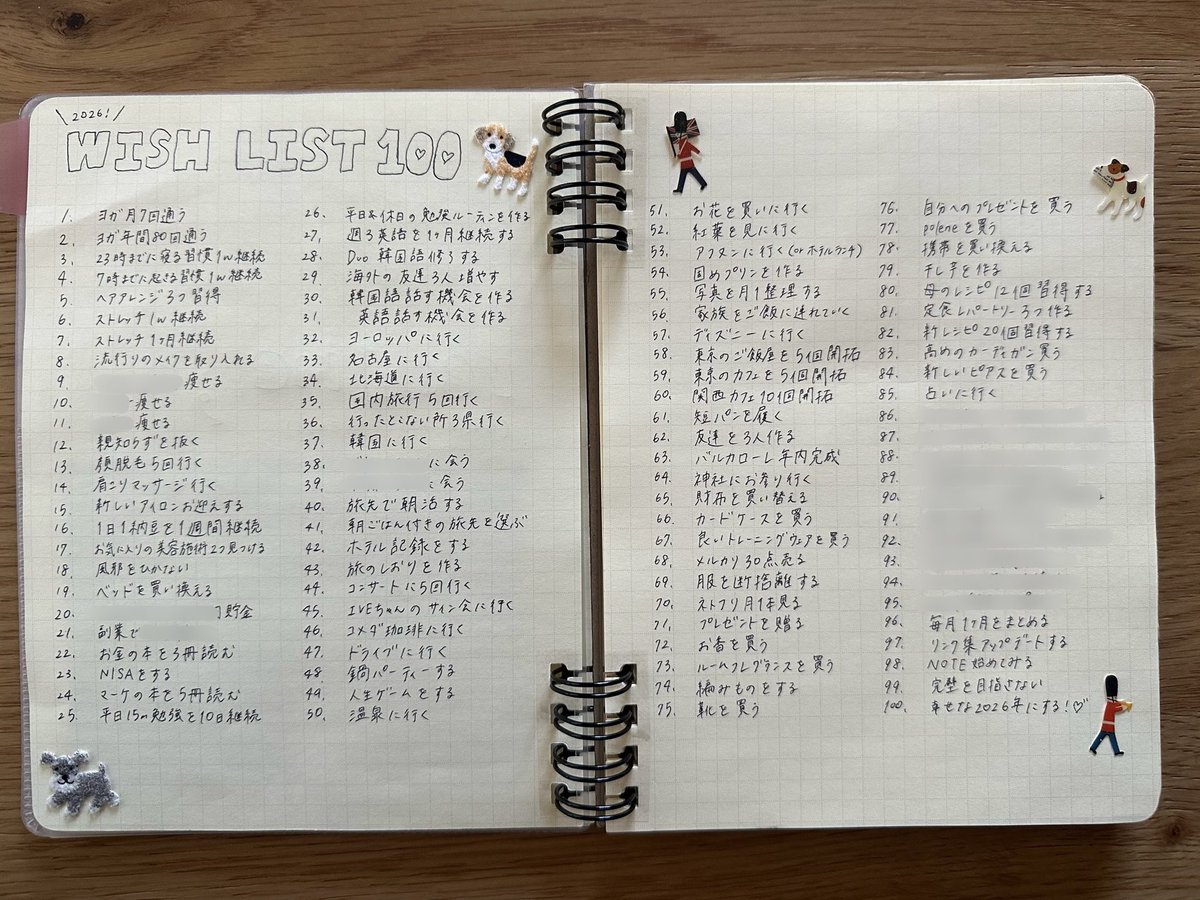 \2026!/
WISH LIST 100
1. ヨガ月7回通う
2. ヨガ年間80回通う
3. 23時までに寝る習慣1w継続
4. 7時までに起きる習慣1w継続
5. ヘアアレンジ3つ習得
6. ストレッチ1w継続
7. ストレッチ1ヶ月継続
8. 流行りのメイクを取り入れる
9. 痩せる
10. 痩せる
11. 痩せる
12. 親知らずを抜く
13. 顔脱毛5回行く
14. 肩こりマッサージ行く
15. 新しいアイロンお迎えする
16. 1日1納豆を1週間継続
17. お気に入りの美容施術2つ見つける
18. 風邪をひかない
19. ベッドを買い換える
20. 貯金
21. 副業で
22. お金の本を3冊読む
23. NISAをする
24. マーケの本を5冊読む
25. 平日15m勉強を10日継続
26. 平日&休日の勉強ルーティンを作る
27. 週3英語を1ヶ月継続する
28. Duo 韓国語修了する
29. 海外の友達3人増やす
30. 韓国語話す機会を作る
31. 英語話す機会を作る
32. ヨーロッパに行く
33. 名古屋に行く
34. 北海道に行く
35. 国内旅行5回行く
36. 行ったことない所3県行く
37. 韓国に行く
38. に会う
39. に会う
40. 旅先で朝活する
41. 朝ごはん付きの旅先を選ぶ
42. ホテル記録をする
43. 旅のしおりを作る
44. コンサートに5回行く
45. IVEちゃんのサイン会に行く
46. コメダ珈琲に行く
47. ドライブに行く
48. 鍋パーティーする
49. 人生ゲームをする
50. 温泉に行く
51. お花を買いに行く
52. 紅葉を見に行く
53. アフタヌンに行く(orホテルランチ)
54. 固めプリンを作る
55. 写真を月1整理する
56. 家族をご飯に連れていく
57. ディズニーに行く
58. 東京のご飯屋を5個開拓
59. 東京のカフェを5個開拓
60. 関西カフェ10個開拓
61. 短パンを履く
62. 友達を3人作る
63. バルカローレ年内完成
64. 神社にお参り行く
65. 財布を買い替える
66. カードケースを買う
67. 良いトレーニングウェアを買う
68. メルカリ30点売る
69. 服を断捨離する
70. ネトフリ月1本見る
71. プレゼントを贈る
72. お香を買う
73. ルームフレグランスを買う
74. 編みものをする
75. 靴を買う
76. 自分へのプレゼントを買う
77. poleneを買う
78. 携帯を買い換える
79. 干し芋を作る
80. 母のレシピ12個習得する
81. 定食レパートリー3つ作る
82. 新レシピ20個習得する
83. 高めのカーディガン買う
84. 新しいピアスを買う
85. 占いに行く
86.
87.
88.
89.
90.
91.
92.
93.
94.
95.
96. 毎月1ヶ月をまとめる
97. リンク集アップデートする
98. NOTE始めてみる
99. 完璧を目指さない
100. 幸せな2026年にする!♡